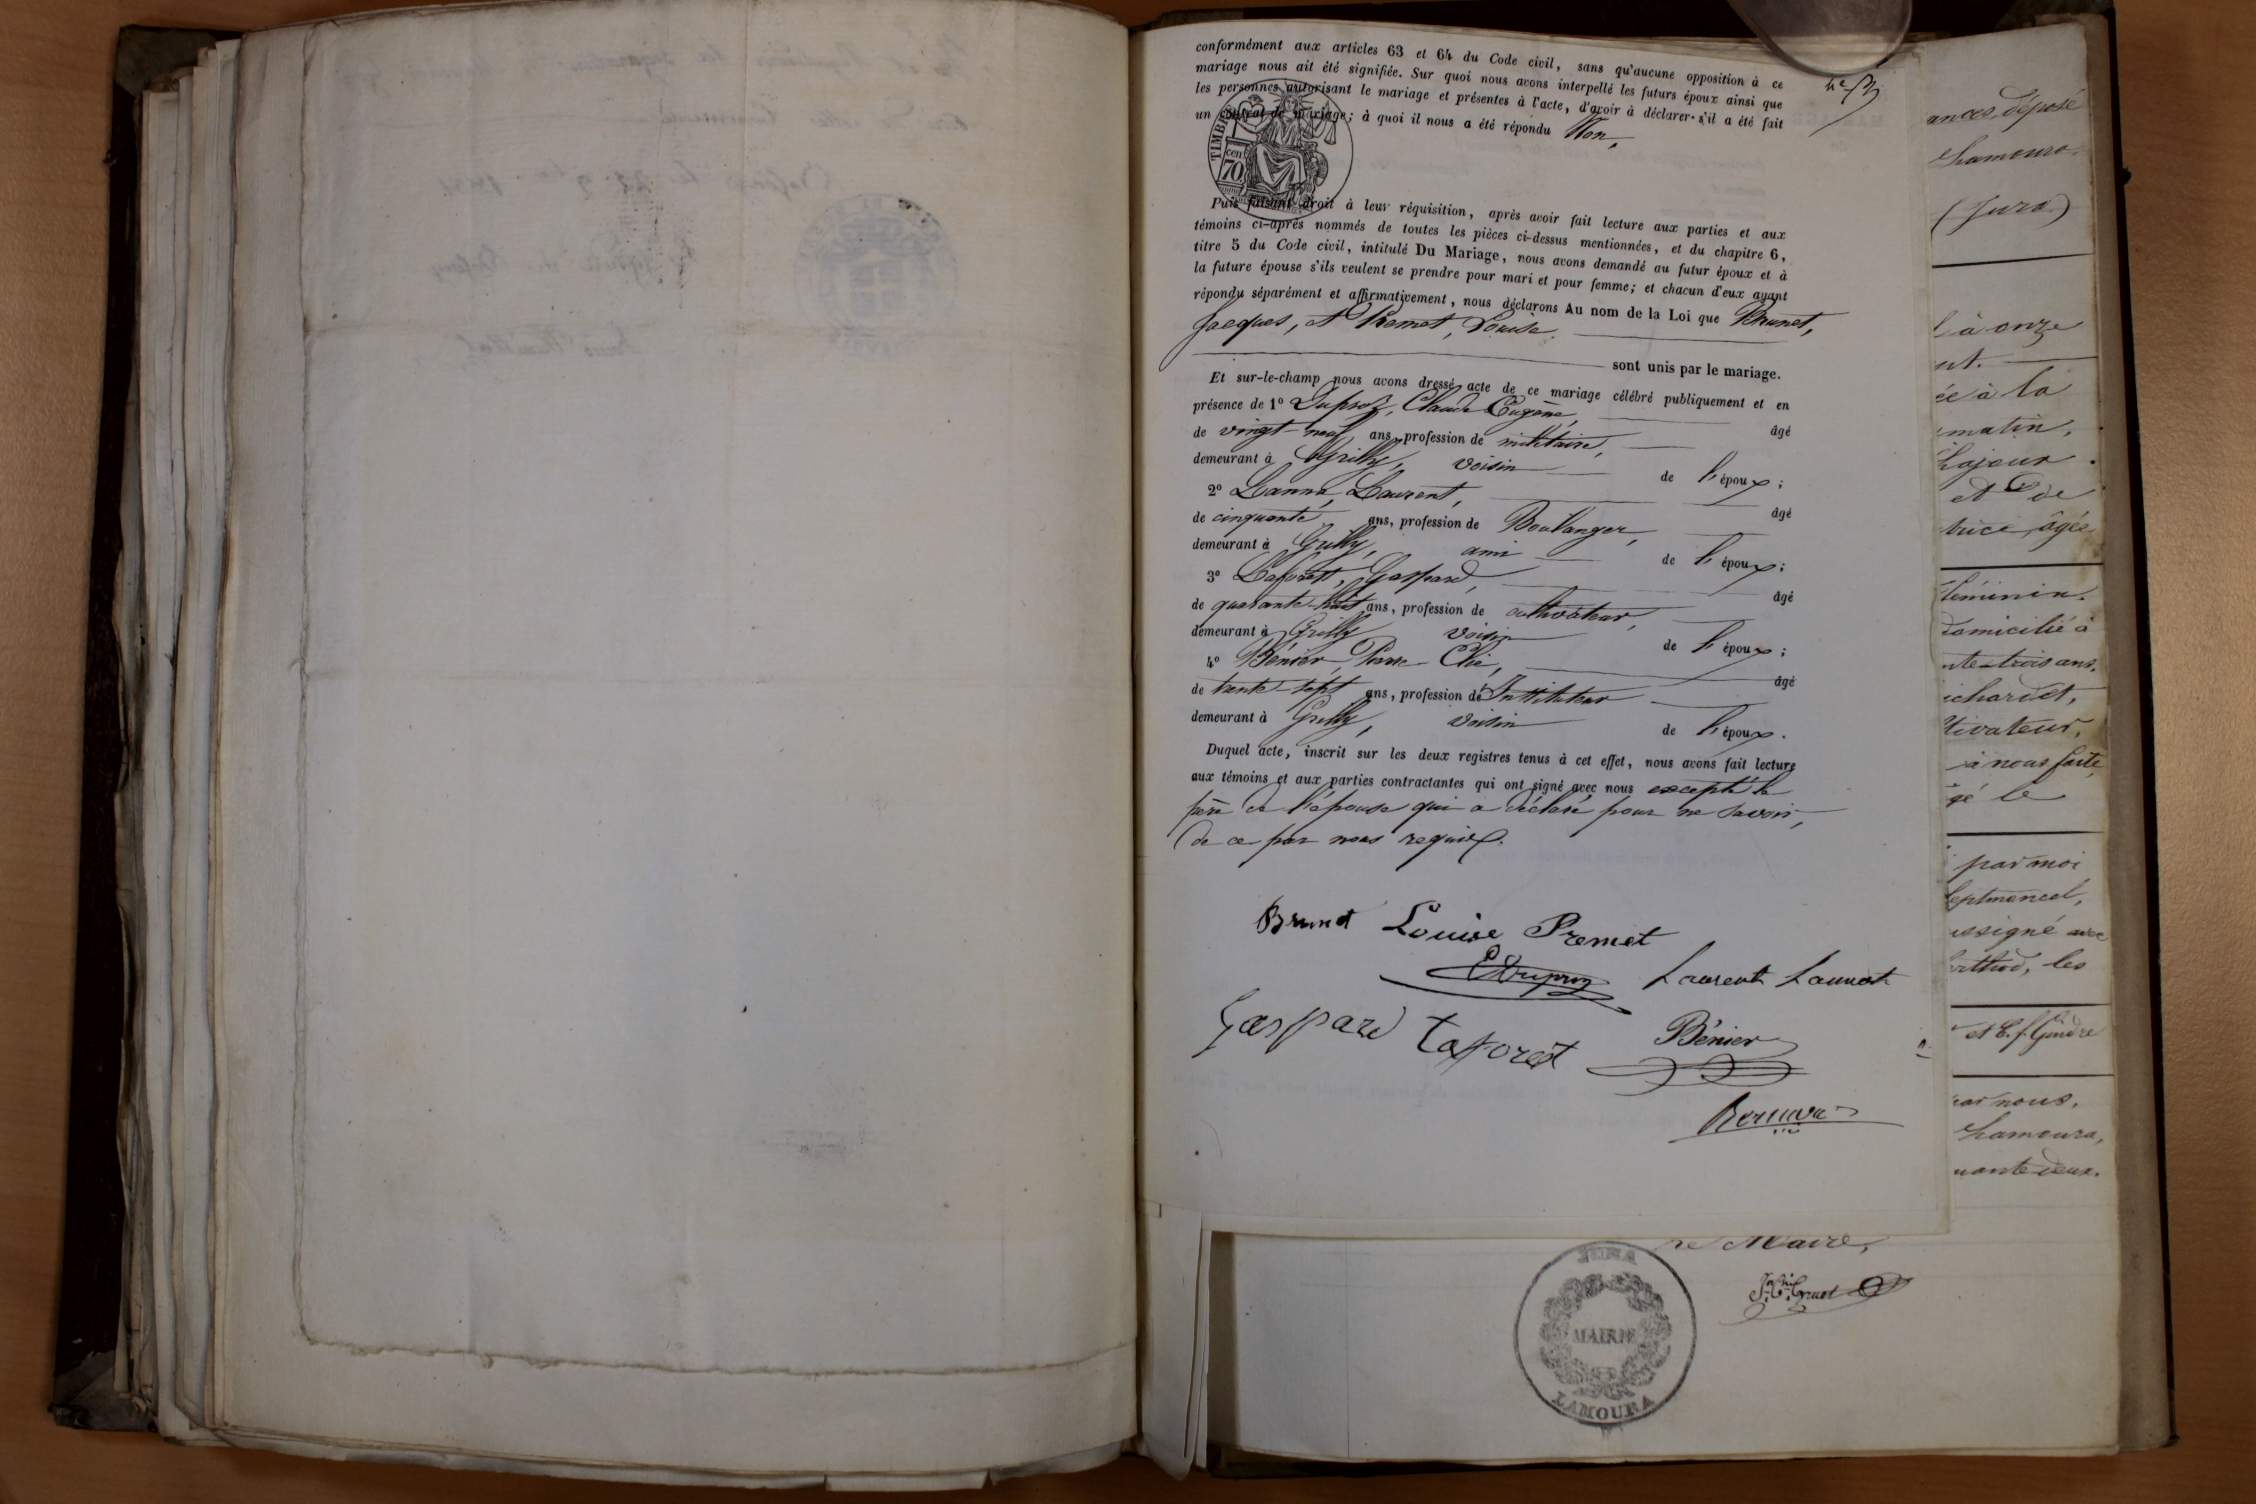 conformément aux articles 63 et 64 du Code civil, sans qu'aucune opposition à ce
mariage nous ait été signifiée. Sur quoi nous avons interpellé les futurs époux ainsi que
les personnes autorisant le mariage et présentes à l'acte, d'avoir à déclarer s'il a été fait
un contrat de mariage; à quoi il nous a été répondu Non,
TIMBRE
cen
70
Puis faisant droit à leur réquisition, après avoir fait lecture aux parties et aux
témoins ci-après nommés de toutes les pièces ci-dessus mentionnées, et du chapitre 6,
titre 5 du Code civil, intitulé Du Mariage, nous avons demandé au futur époux et à
la future épouse s'ils veulent se prendre pour mari et pour femme; et chacun d'eux ayant
répondu séparément et affirmativement, nous déclarons Au nom de la Loi que Brunet,
Jacques, et Premet, Louise.
sont unis par le mariage.
Et sur-le-champ nous avons dressé acte de ce mariage célébré publiquement et en
présence de 1° Duproz, Claude Eugène, âgé
de vingt-neuf ans, profession de militaire,
demeurant à Grilly, voisin de l'époux;
2° Lannat, Laurent, âgé
de cinquante ans, profession de Boulanger,
demeurant à Grilly, ami de l'époux;
3° Laforêt, Gaspard, âgé
de quarante-huit ans, profession de cultivateur,
demeurant à Grilly voisin de l'époux;
4° Bénier, Pierre Elie, âgé
de trente-sept ans, profession de Instituteur
demeurant à Grilly, voisin de l'époux.
Duquel acte, inscrit sur les deux registres tenus à cet effet, nous avons fait lecture
aux témoins et aux parties contractantes qui ont signé avec nous excepté le
père de l'épouse qui a déclaré pour ne savoir,
de ce par nous requis.
Brunet Louise Premet
EDuproz Laurent Lannat
Gaspard Laforest Bénier
ances déposé
Lamoura
(Jura)
à onze
à la
matin,
et de
trice, âgée
féminin.
domicilié à
nte-trois ans.
ichardet,
tivateur,
à nous faite
gé le
par moi
Septmoncel,
ussigné avec
les
par nous,
Lamoura,
uante deux.
Maire,
JURA
MAIRIE
LAMOURA